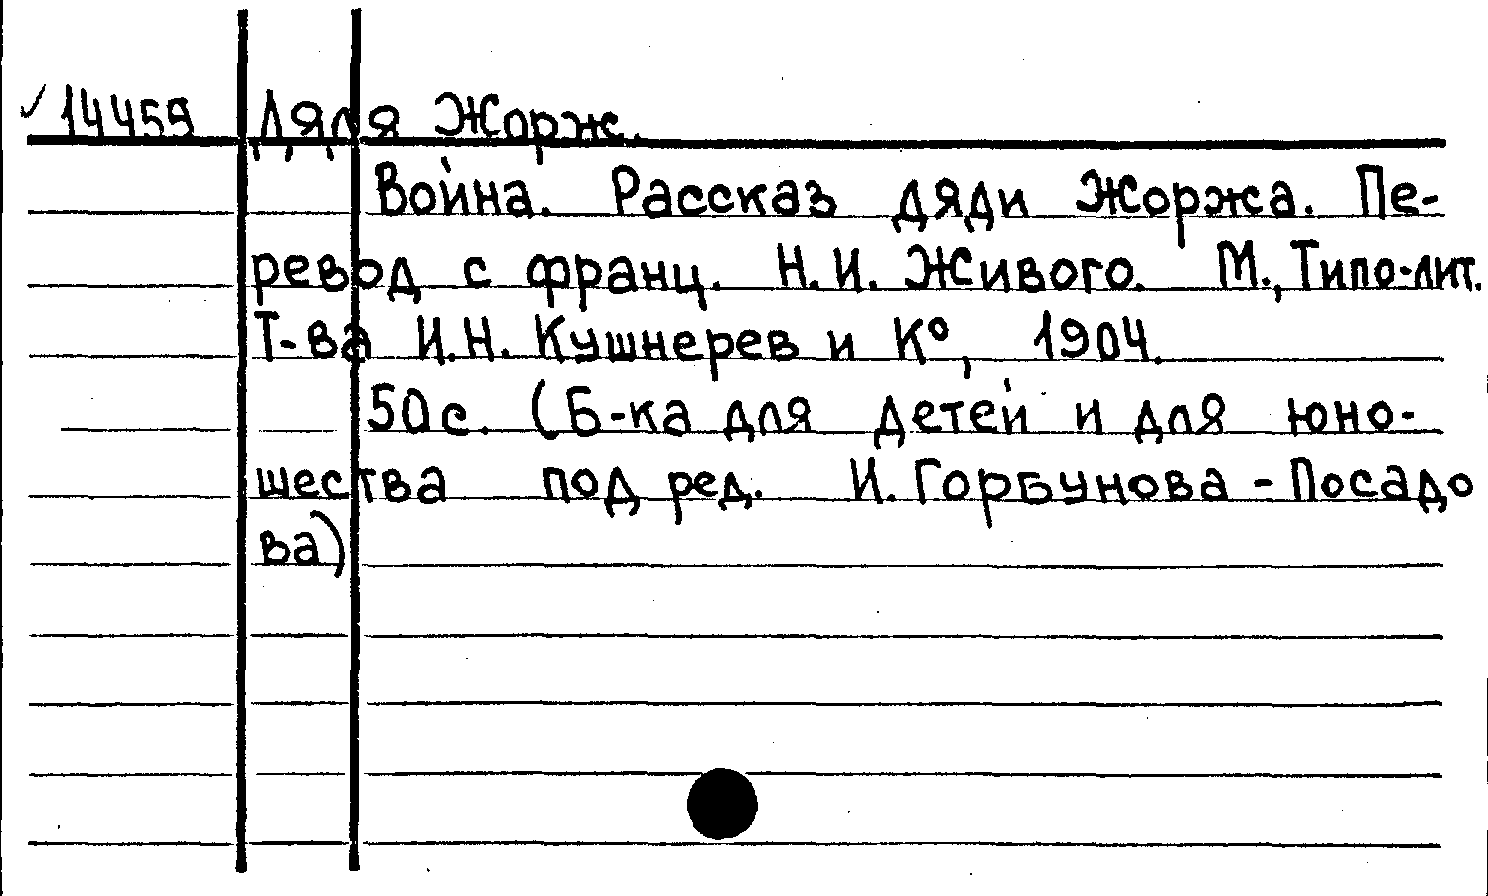 ✓14459 Дядя Жорж.
Война. Рассказ дяди Жоржа. Пе-
ревод с франц. Н.И. Живого. М., Типо-лит.
Т-ва И.Н. Кушнерев и К°, 1904.
50 с. (Б-ка для детей и для юно-
шества под ред. И. Горбунова-Посадо
ва)